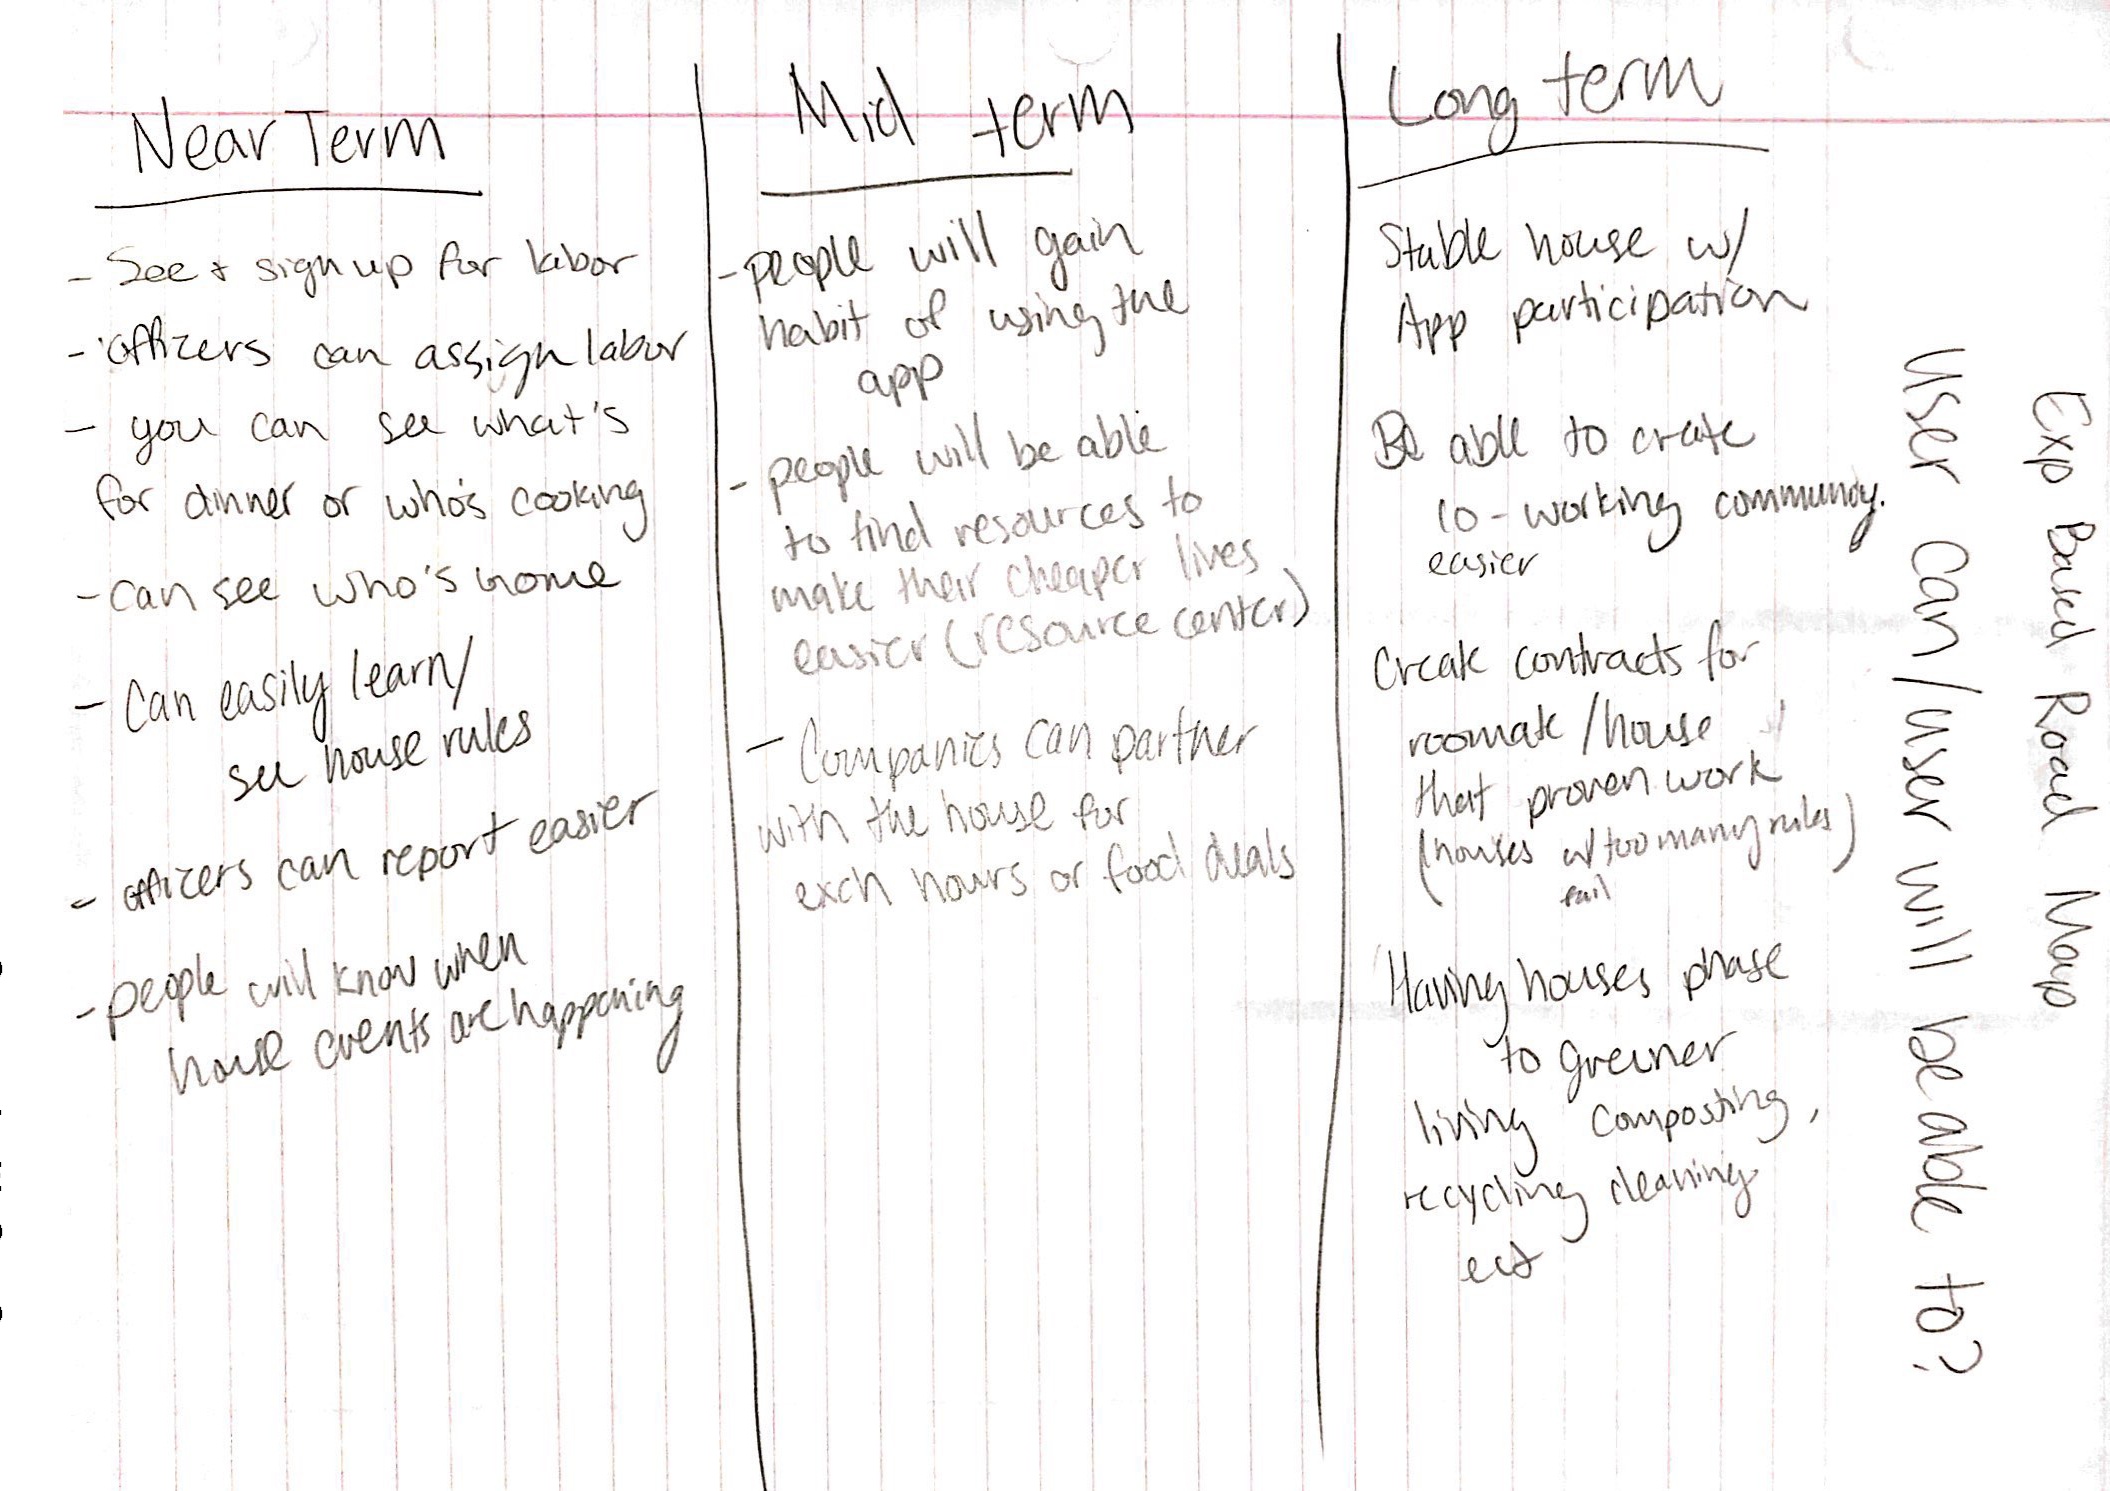 Exp Based Road Map
User Can/user will be able to?
Near Term
- See + sign up for labor
- officers can assign labor
- you can see what's
for dinner or who's cooking
- can see who's home
- Can easily learn/
see house rules
- officers can report easier
- people will know when
house events are happening
Mid term
- people will gain
habit of using the
app
- people will be able
to find resources to
make their cheaper lives
easier (resource center)
- Companies can partner
with the house for
exch hours or food deals
Long term
Stable house w/
App participation
Be able to create
co-working community.
easier
Create contracts for
roomate /house
that proven work
(houses w/ too many rules)
fail
Having houses phase
to greener
living composting,
recycling cleaning
ect